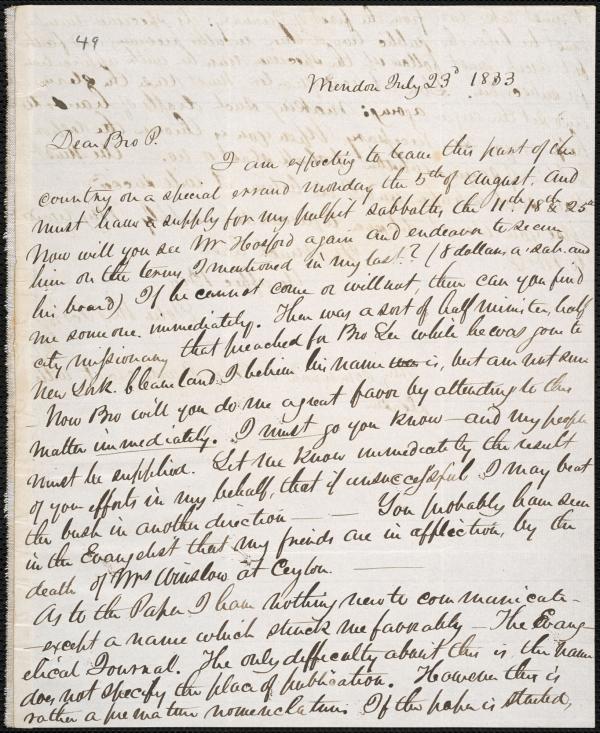 49
Mendon July 23d 1833
Dear Bro P.
I am expecting to leave this part of the
country on a special errand monday the 5th of August. And
must have a supply for my pulpit Sabbaths the 11th. 18th & 25th
Now will you see Mr Hosford again and endeavor to secure
him on the terms I mentioned in my last? (8 dollars a Sab. and
his board) If he cannot come or will not, then can you find
me someone immediately. There was a sort of half minister, half
city missionary that preached for Bro while he was gone to
New York. Cleaveland I believe his name is, but am not sure
- Now Bro will you do me a great favor by attending to this
matter immediately. I must go you know - and my people
must be supplied. Let me know immediately the result
of your efforts in my behalf, that if unsuccessful I may beat
the bush in another direction — You probably have seen
in the Evangelist that my friends are in affliction, by the
death of Mrs Winslow at Ceylon. —
As to the Paper I have nothing new to communicate -
- except a name which struck me favorably - The Evang-
elical Journal. The only difficulty about this is, the name
does not specify the place of publication. However this is
rather a premature nomenclature. If the paper is started,